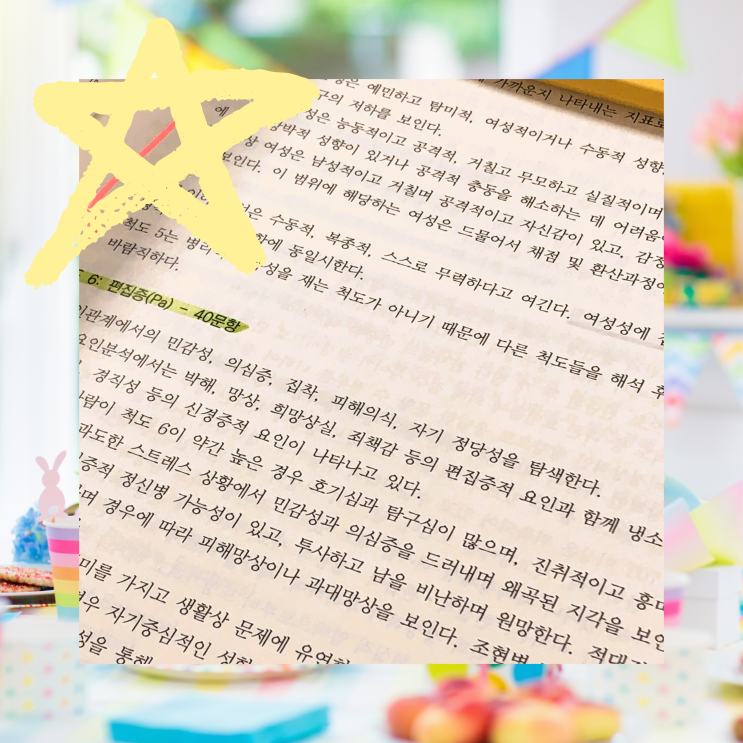 은 예민하고 탐미적, 여성적이거나 수동적 성향 가까운지 나타내는 지표로
에 구의 저하를 보인다.
성은 능동적이고 공격적, 거칠고 무모하고 실질적이며
강박적 성향이 있거나 공격적 충동을 해소하는 데 어려움
상 여성은 남성적이고 거칠며 공격적이고 자신감이 있고, 감정
보인다. 이 범위에 해당하는 여성은 드물어서 채점 및 환산과정
은 수동적, 복종적, 스스로 무력하다고 여긴다. 여성성에
척도 5는 병리 에 동일시한다.
성을 재는 척도가 아니기 때문에 다른 척도들을 해석
바람직하다.
6: 편집증(Pa) - 40문항
관계에서의 민감성, 의심증, 집착, 피해의식, 자기 정당성을 탐색한다.
요인분석에서는 박해, 망상, 희망상실, 죄책감 등의 편집증적 요인과 함께 냉소
경직성 등의 신경증적 요인이 나타나고 있다.
사람이 척도 6이 약간 높은 경우 호기심과 탐구심이 많으며, 진취적이고 흥미
과도한 스트레스 상황에서 민감성과 의심증을 드러내며 왜곡된 지각을 보인
증적 정신병 가능성이 있고, 투사하고 남을 비난하며 원망한다. 적대
며 경우에 따라 피해망상이나 과대망상을 보인다. 조현병
미를 가지고 생활상 문제에 유연하
경우 자기중심적인 성향
성을 통해